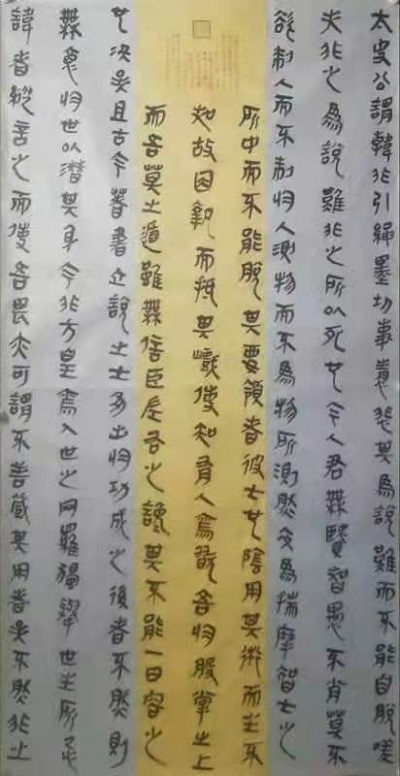 太史公謂韓非引繩墨切事情悲其為說難而不能自脫嗟
夫非之為說難非之所以死也今人君無賢智愚不肖莫不
欲制人而不制於人測物而不為物所測然為揣摩智士之
所中而不能脫其要領者彼士也陰用其術而主不
知故因埶而抵其巇使知有人焉翫吾於股掌之上
而吾莫之遁雖無信臣左右之讒其不能一日容之
也決矣且古今著書立說之士多出於功成之後者不然則
無意於世以潛其身今非方皇焉入世之網羅獨舉世主所忌
諱者縱言之而使吾畏夫可謂不善藏其用者矣不然非之